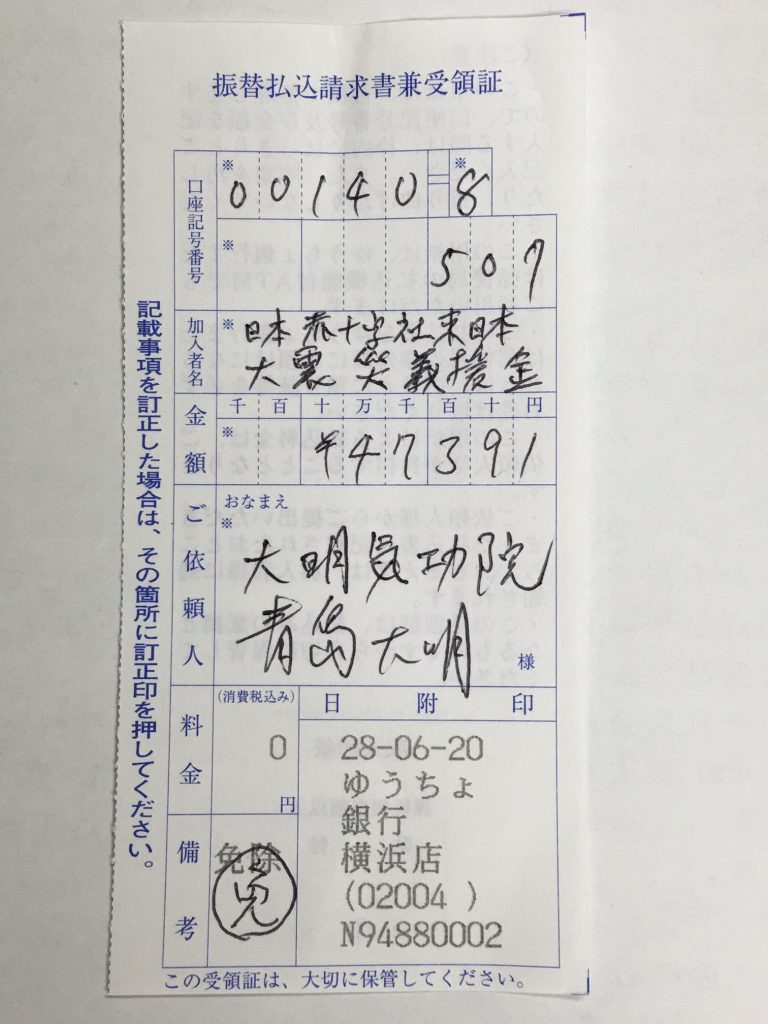 振替払込請求書兼受領証
口座記号番号
※ 00140=8 ※
※ 507
加入者名
※ 日本赤十字社東日本
大震災義援金
金額
千百十万千百十円
※ ¥47391
ご依頼人
おなまえ
※
大明気功院
青島大明
様
料金
(消費税込み)
0
円
日附印
28-06-20
ゆうちょ
銀行
横浜店
(02004 )
N94880002
備考
免除
免
この受領証は、大切に保管してください。
記載事項を訂正した場合は、その箇所に訂正印を押してください。